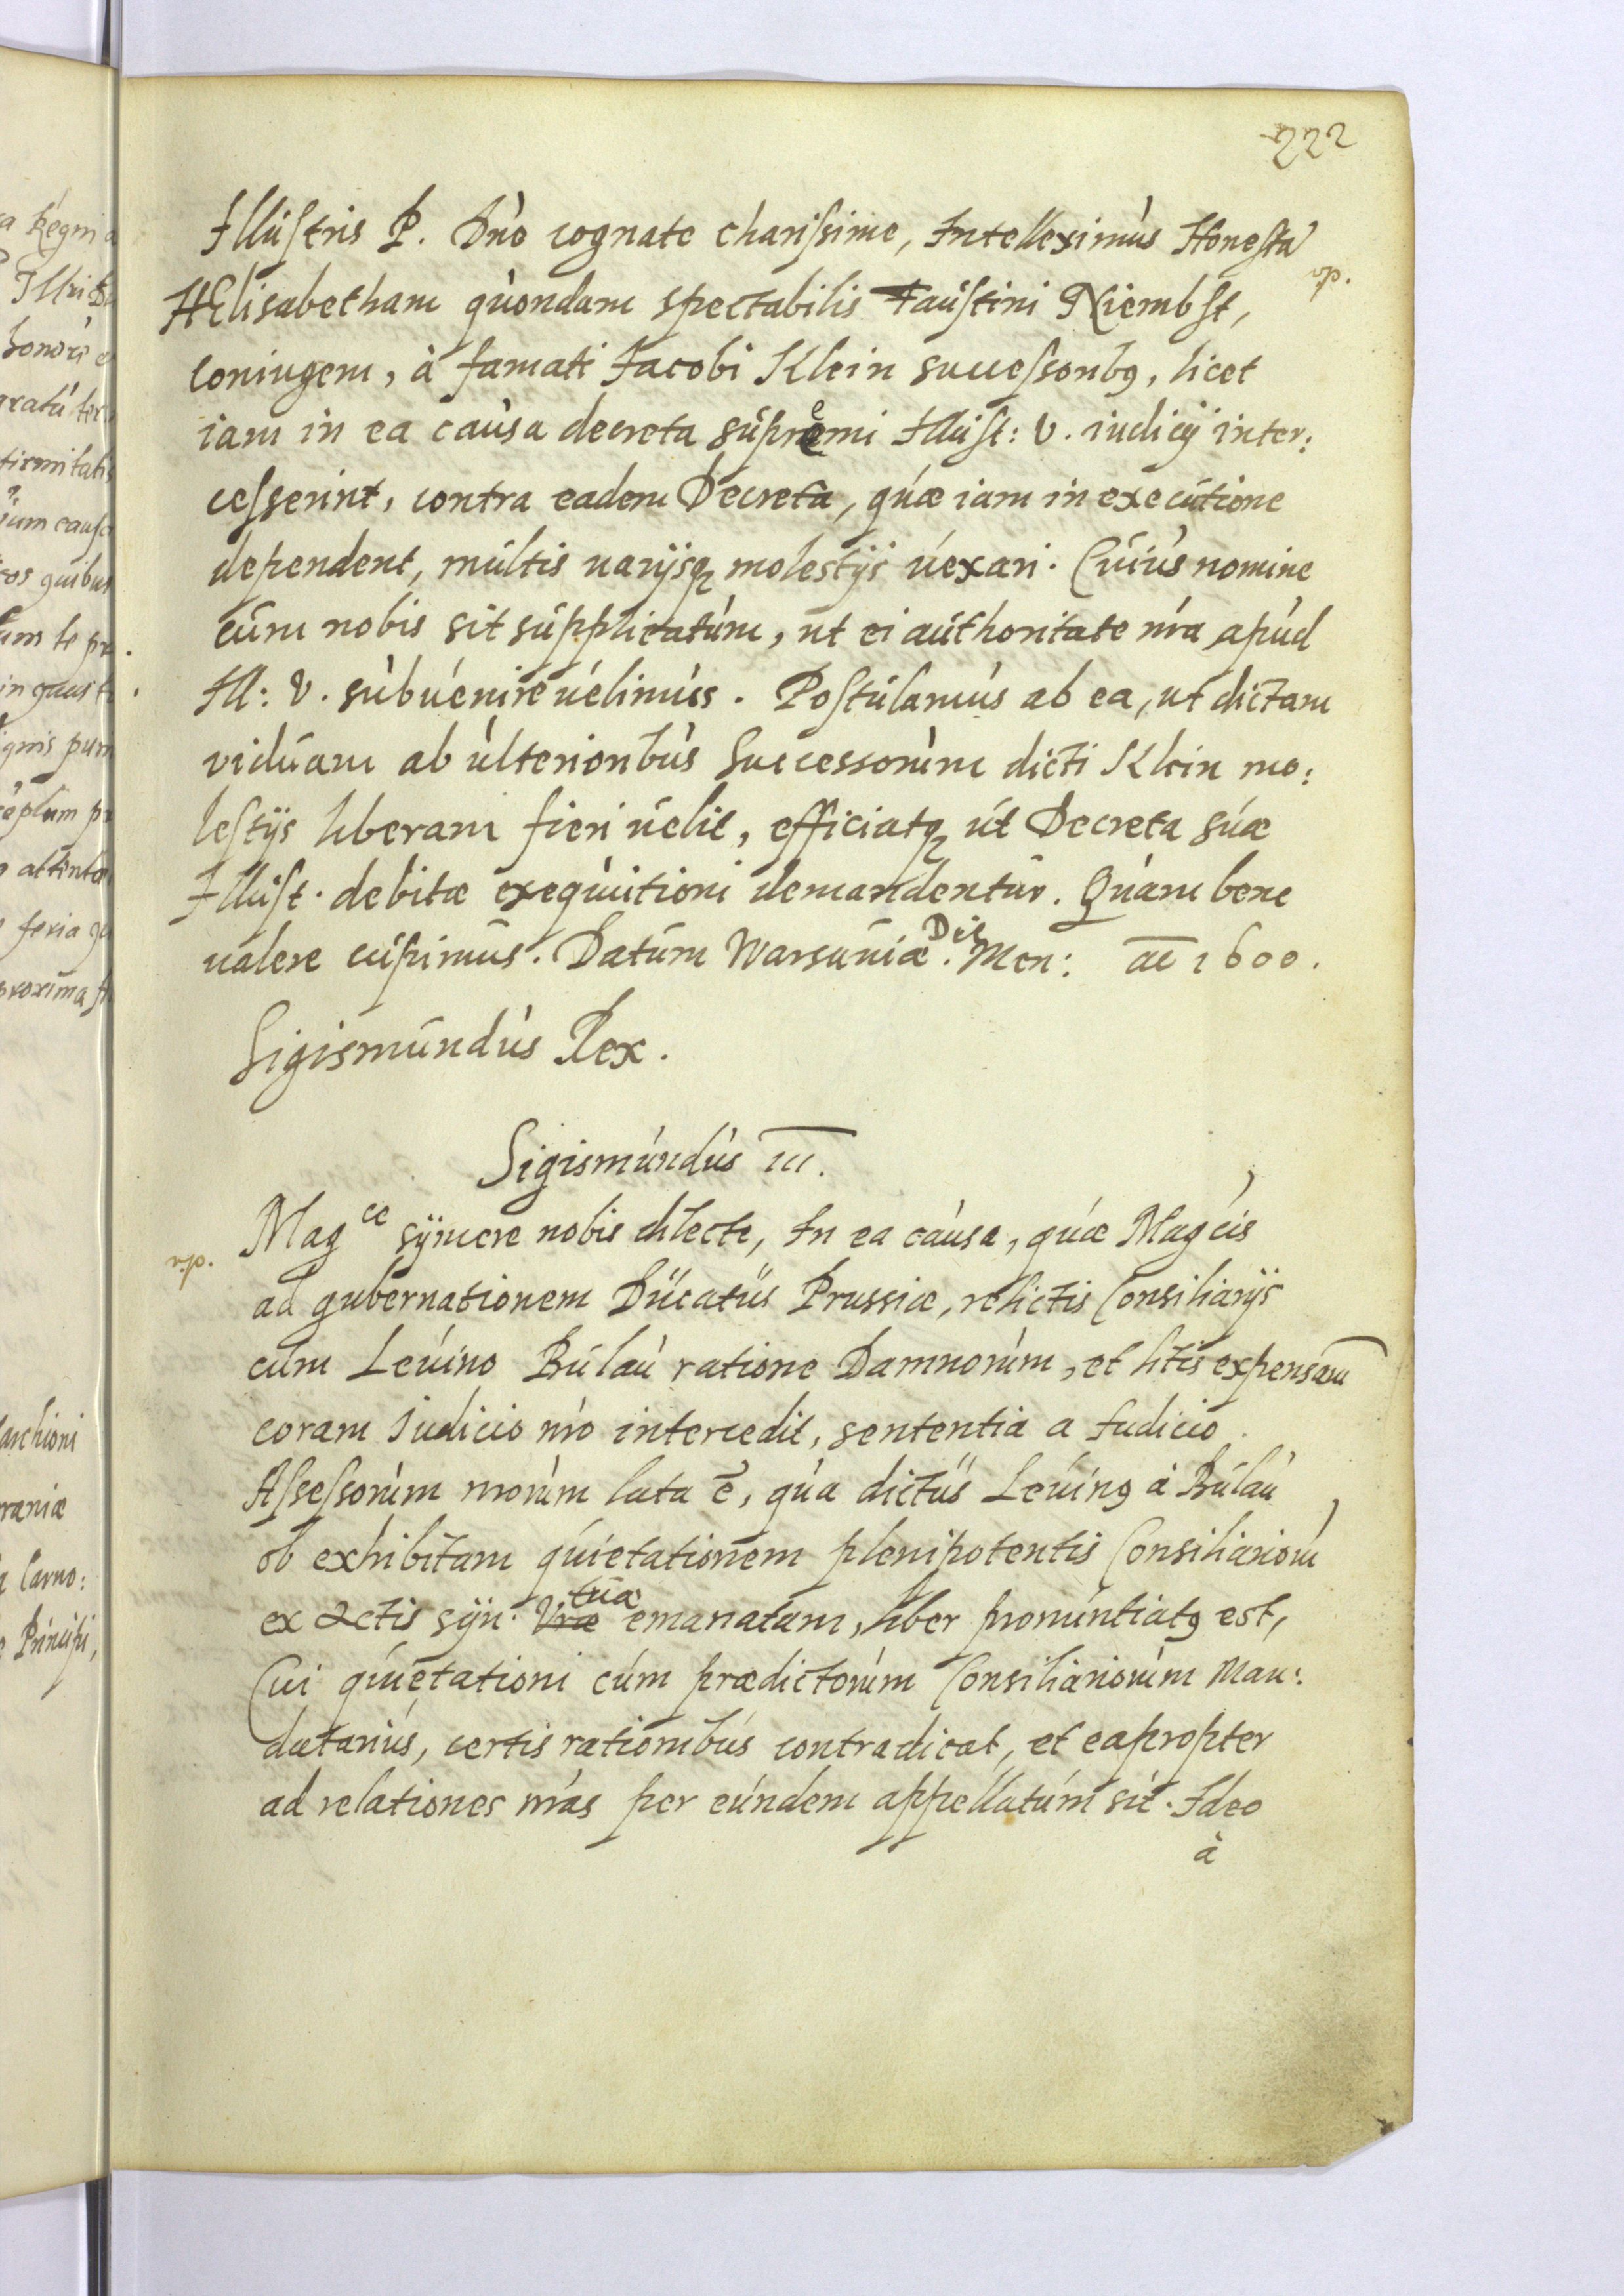 222
Illustris P. Dno cognate charissime, Intelleximus Honestā
HElisabetham quondam spectabilis Faustini Niembst,
vp.
coniugem, à famati Jacobi Klein successoribg, licet
iam in ea causa decreta supremi Illust: V. iudicij inter:
cesserint, contra eadem Decreta, quæ iam in executione
dependent, multis varijsq molestijs vexari. Cuius nomine
cum nobis sit supplicatum, ut ei authoritate nra apud
Ill: V. subuenire uelimus. Postulamus ab ea, ut dictam
viduam ab ulterioribus Successorum dicti Klein mo:
lestijs liberam fieri uelit, efficiatq ut Decreta suæ
Illust. debitæ exequutioni demandentur. Quam bene
ualere cupimus. Datum Warsauiæ. Die Men: ao 1600.
Sigismundus Rex.
Sigismundus III.
vp.
Mag ce syncere nobis dilecte, In ea causa, quæ Magcis
ad gubernationem Ducatus Prussiæ, relictis Consiliarijs
cum Leuino Bulau ratione Damnorum, et litis expensarū
coram Iudicio nro intercedit, sententia a Iudicio
Assessorum nrorum lata ē, qua dictus Leuing à Bulau
ob exhibitam quietationem plenipotentis Consiliariorū
ex actis syn. Vræ tuæ emanatam, liber pronuntiatg est,
Cui quietationi cum prædictorum Consiliariorum Man:
datarius, certis rationibus contradicat, et eapropter
ad relationes nras per eundem appellatum sit. Ideo
à